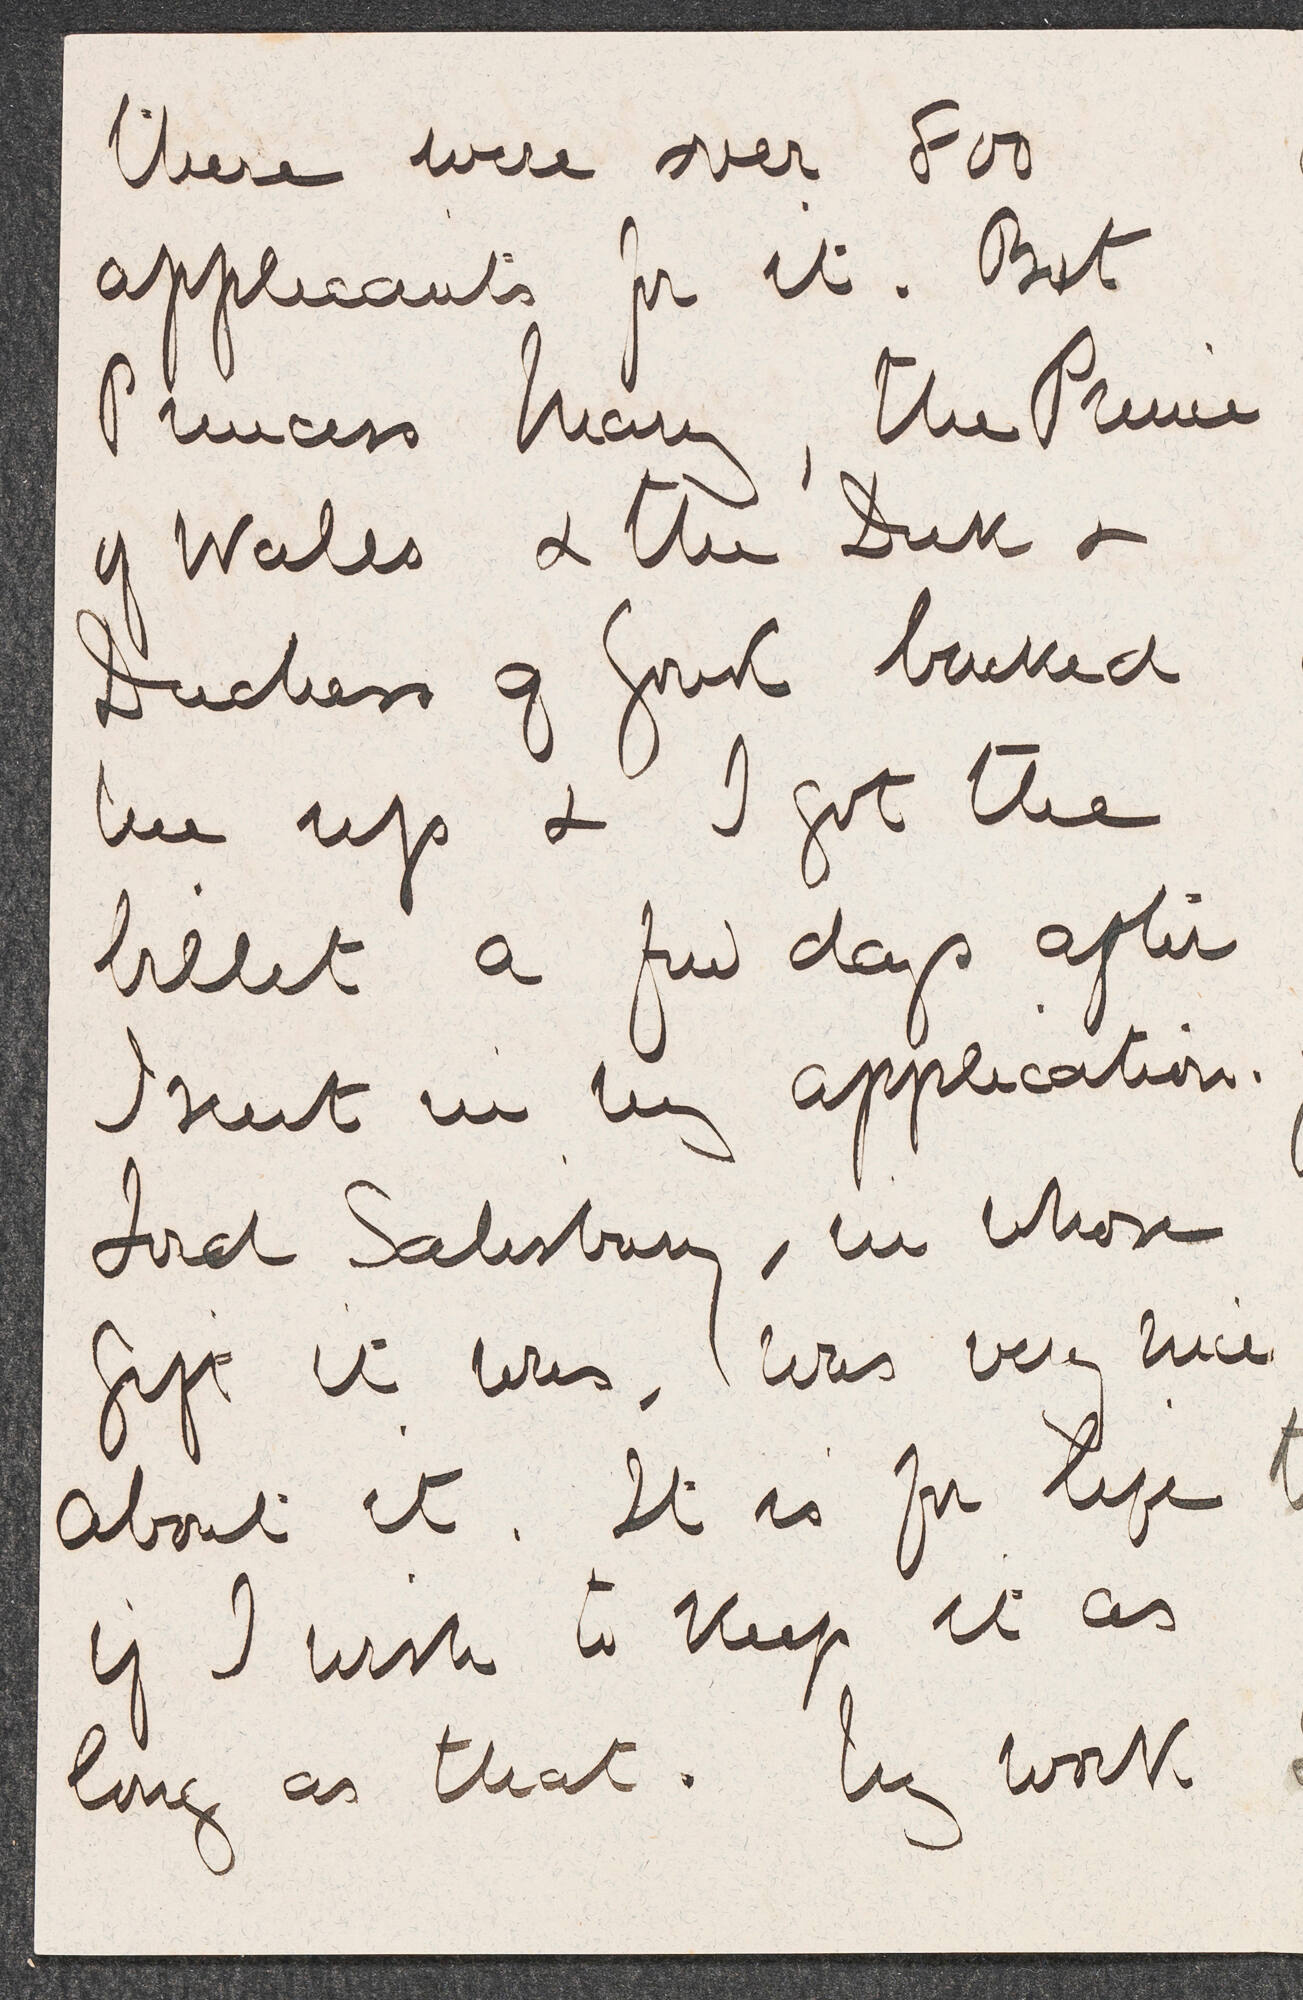 there were over 800
applicants for it. But
Princess Mary, the Prince
of Wales & the Duke &
Duchess of York backed
me up & I got the
billet a few days after
I sent in my application.
Lord Salisbury, in whose
gift it was, was very nice
about it. It is for life
if I wish to keep it as
long as that. My work